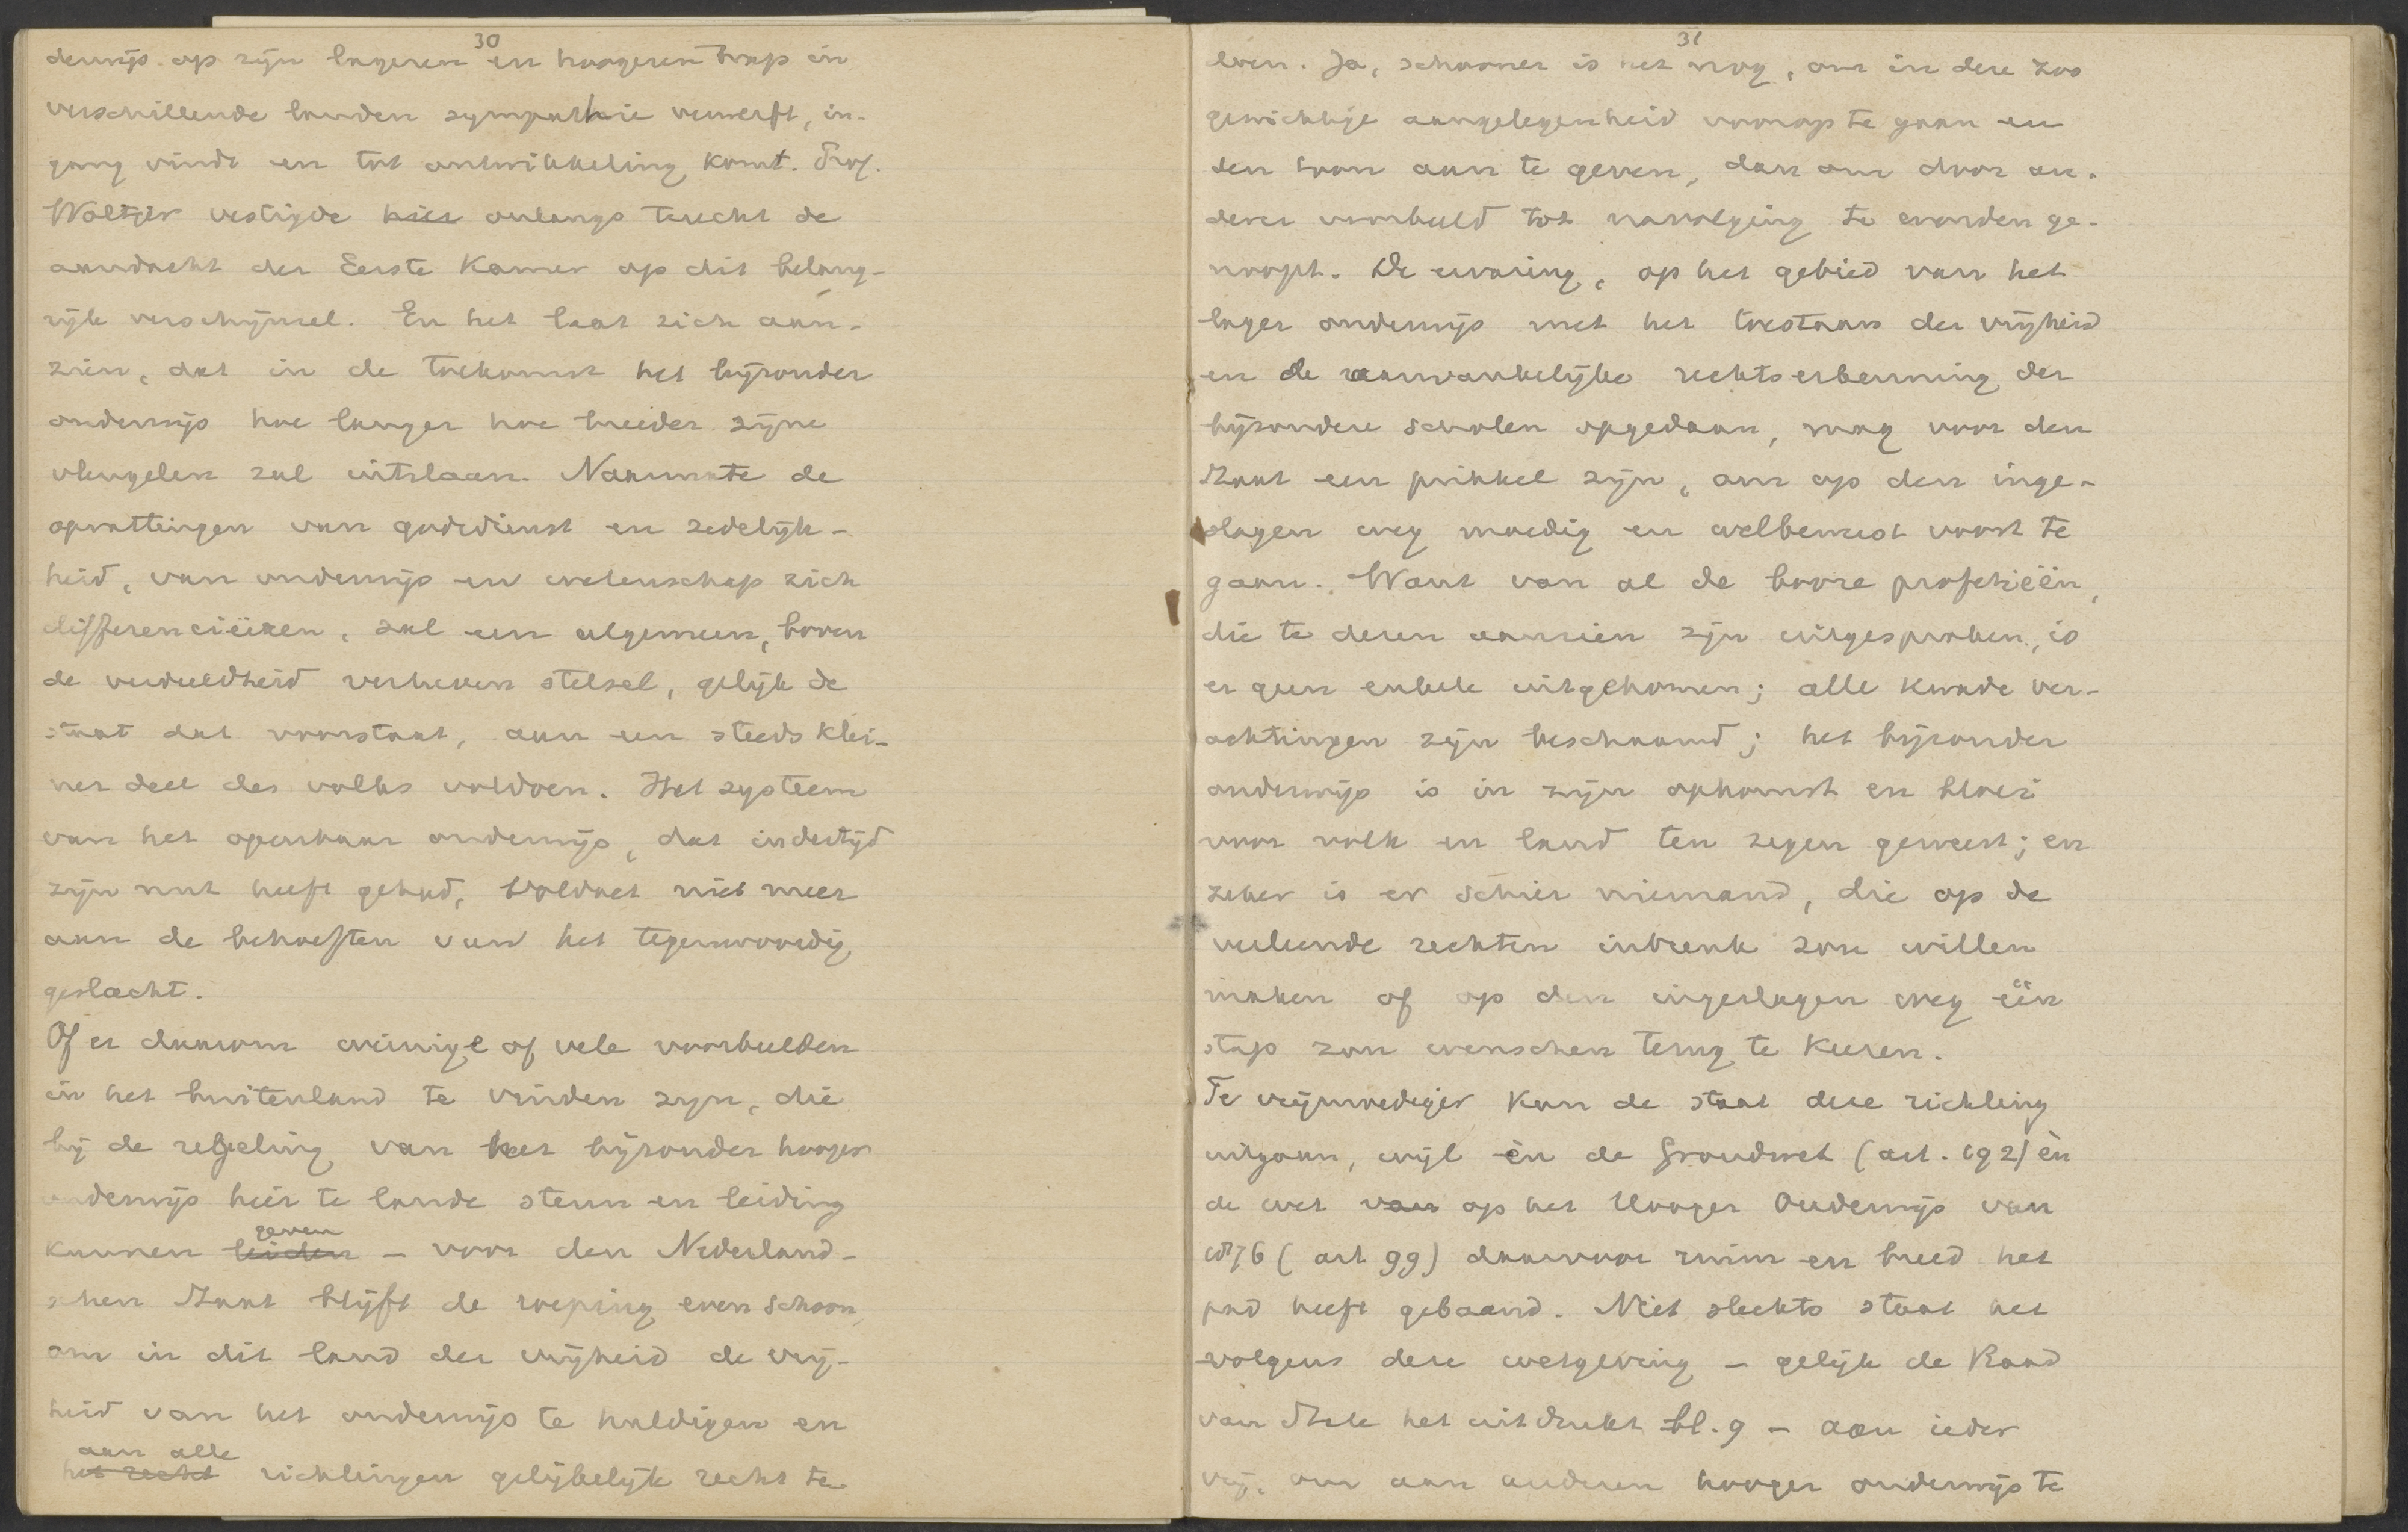 30
derwijs op zijn lageren en hoogeren trap in
verschillende landen sympathie verwerft, in-
gang vindt en tot ontwikkeling komt. Prof.
Woltjer vestigde hier onlangs terecht de
aandacht der Eerste Kamer op dit belang-
rijk verschijnsel. En het laat zich aan-
zien, dat in de toekomst het bijzonder
onderwijs hoe langer hoe breeder zijne
vleugelen zal uitslaan. Naarmate de
opvattingen van godsdienst en zedelijk-
heid, van onderwijs en wetenschap zich
differenciëeren, zal een algemeen, boven
de verdeeldheid verheven stelsel, gelijk de
staat dat voorstaat, aan een steeds klei-
ner deel des volks voldoen. Het systeem
van het openbaar onderwijs, dat indertijd
zijn nut heeft gehad, voldoet niet meer
aan de behoeften van het tegenwoordig
geslacht.
Of er daarom weinige of vele voorbeelden
in het buitenland te vinden zijn, die
bij de regeling van het bijzonder hooger
onderwijs hier te lande steun en leiding
geven
kunnen leiden - voor den Nederland-
schen Staat blijft de roeping even schoon,
om in dit land der vrijheid de vrij-
heid van het onderwijs te huldigen en
aan alle
het recht richtingen gelijkelijk recht te
31
doen. Ja, schooner is het nog, om in deze zoo
gewichtige aangelegenheid voorop te gaan en
den toon aan te geven, dan om door an-
derer voorbeeld tot navolging te worden ge-
noopt. De ervaring, op het gebied van het
lager onderwijs met het toestaan der vrijheid
en de aanvankelijke rechtserkenning der
bijzondere scholen opgedaan, mag voor den
Staat een prikkel zijn, om op den inge-
slagen weg moedig en welbewust voort te
gaan. Want van al de booze profetieën,
die te dezen aanzien zijn uitgesproken, is
er geen enkele uitgekomen; alle kwade ver-
achtingen zijn beschaamd; het bijzonder
onderwijs is in zijn opkomst en bloei
voor volk en land ten zegen geweest; en
zeker is er schier niemand, die op de
verleende rechten inbreuk zou willen
maken of op den ingeslagen weg één
stap zou wenschen terug te keeren.
Te vrijmoediger kan de staat deze richting
uitgaan, wijl èn de Grondwet (art. 192) èn
de wet van op het Hooger Onderwijs van
1876 (art 99) daarvoor ruim en breed het
pad heeft gebaand. Niet slechts staat het
volgens deze wetgeving - gelijk de Raad
van State het uitdrukt bl. 9 - aan ieder
vrij, om aan anderen hooger onderwijs te